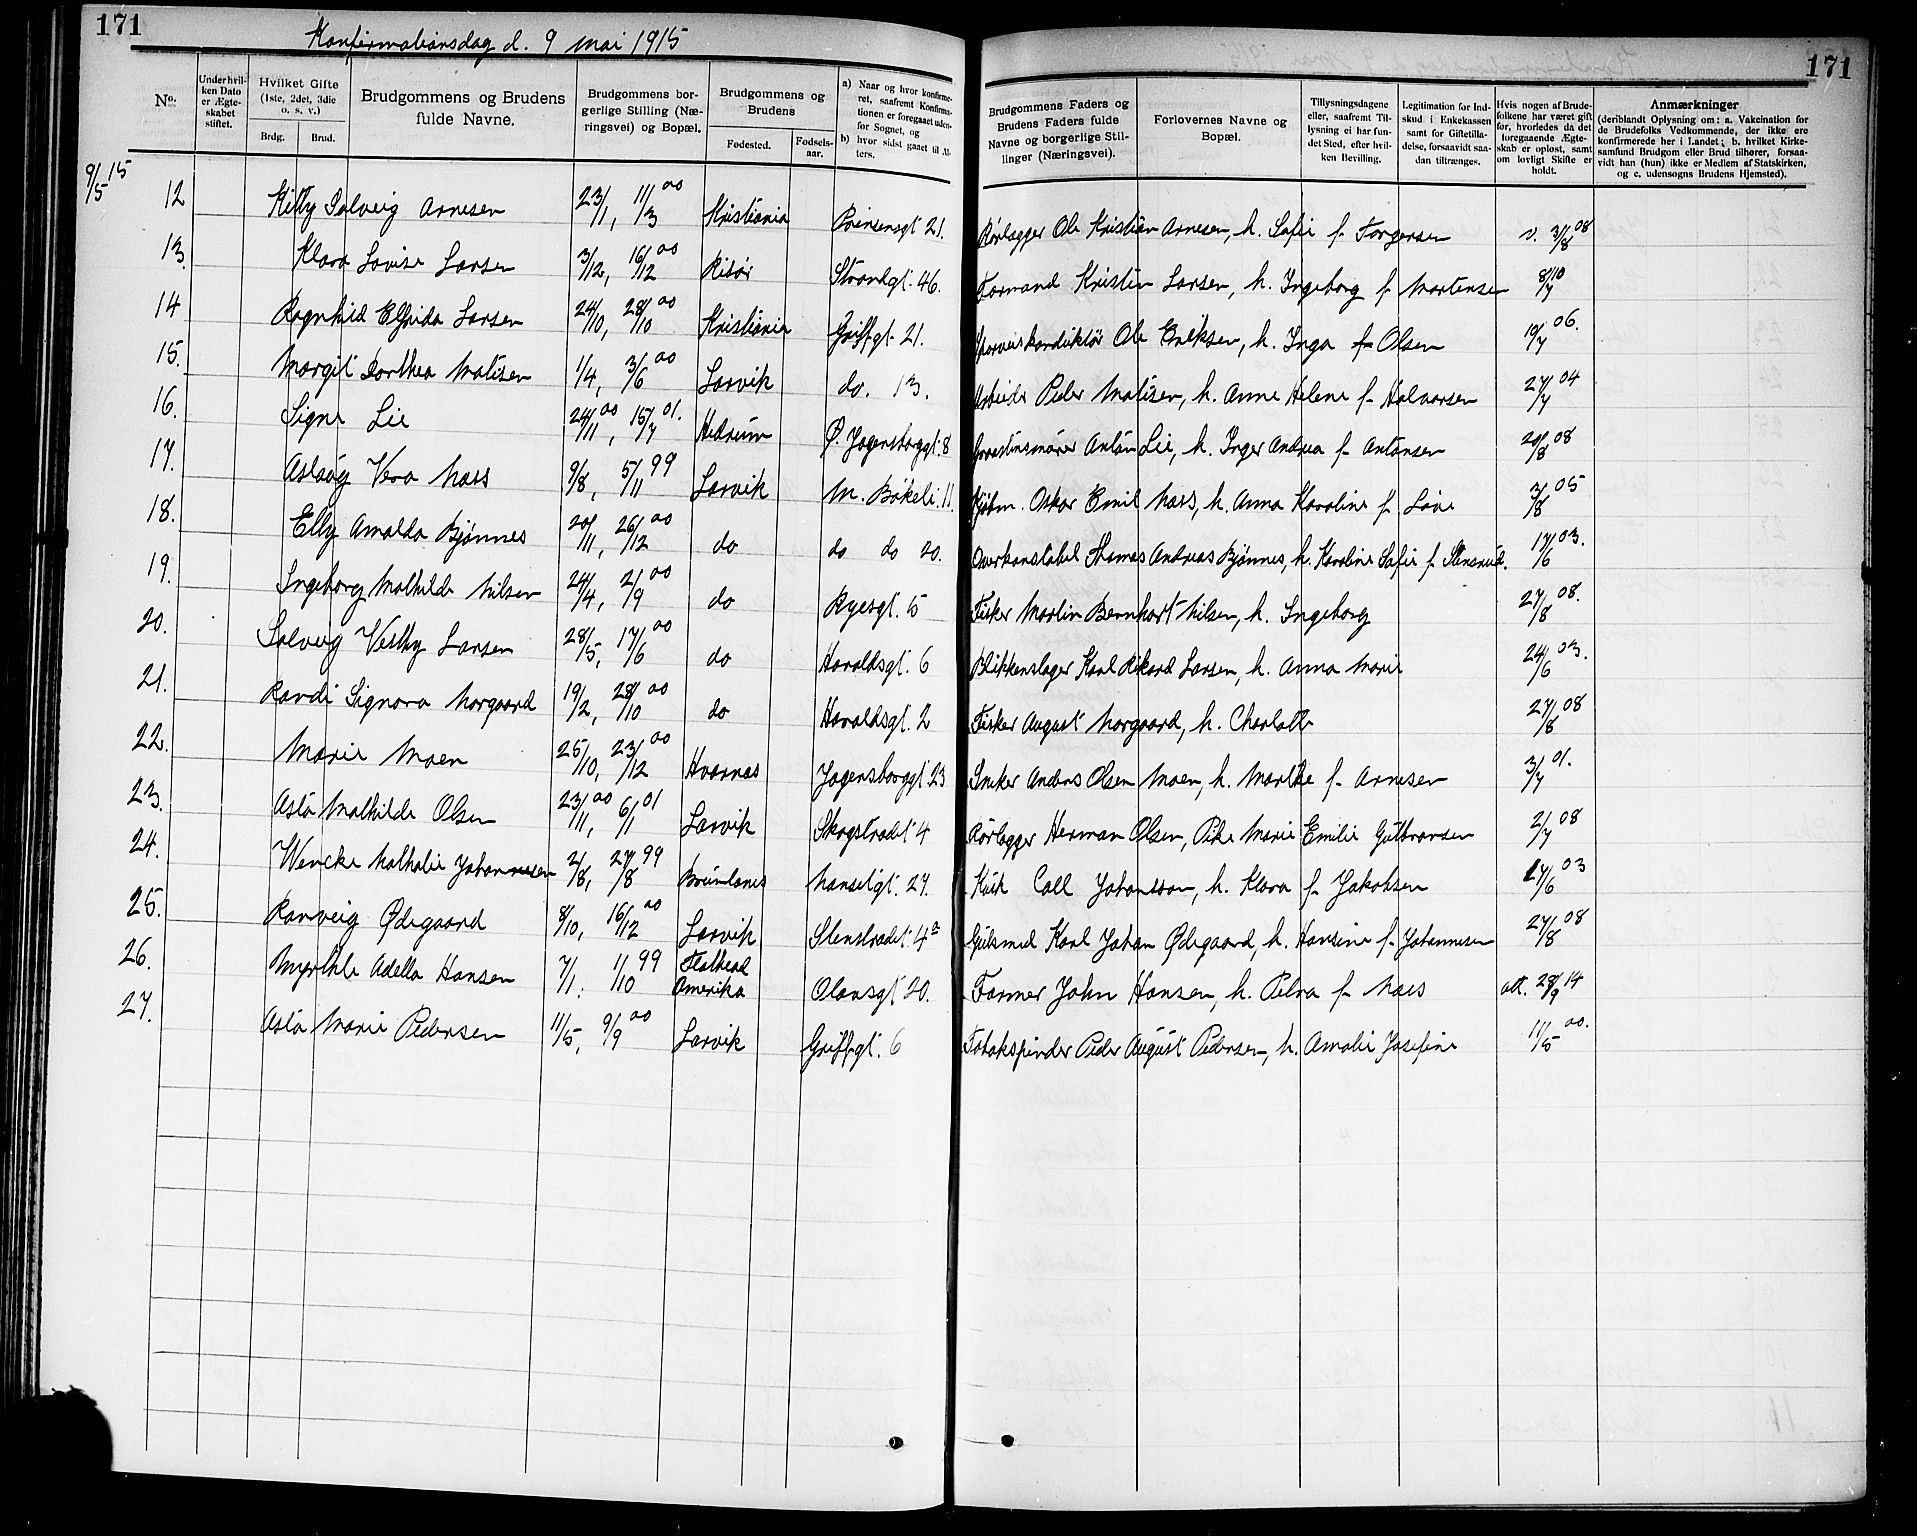 171
Konfirmationsdag d. 9 mai 1915
No.
Under hvil-
ken Dato
er Ægte-
skabet
stiftet.
Hvilket Gifte
(1ste, 2det, 3die
o. s. v.)
Brdg. Brud.
Brudgommens og Brudens
fulde Navne.
Brudgommens bor-
gerlige Stilling (Næ-
ringsvei) og Bopæl.
Brudgommens og
Brudens
Fødested. Fødsels-
aar.
a) Naar og hvor konfirme-
ret, saafremt Konfirma-
tionen er foregaaet uden-
for Sognet, og
b) hvor sidst gaaet til Al-
ters.
Brudgommens Faders og
Brudens Faders fulde
Navne og borgerlige Stil-
linger (Næringsvei).
Forlovernes Navne og
Bopæl.
Tillysningsdagene
eller, saafremt Til-
lysning ei har fun-
det Sted, efter hvil-
ken Bevilling.
Legitimation for Ind-
skud i Enkekassen
samt for Giftetilla-
delse, forsaavidt saa-
dan tiltrænges.
Hvis nogen af Brude-
folkene har været gift
før, hvorledes da det
foregaaende Ægte-
skab er opløst, samt
om lovligt Skifte er
holdt.
Anmærkninger
(deriblandt Oplysning om: a. Vakcination for
de Brudefolks Vedkommende, der ikke ere
konfirmerede her i Landet; b. hvilket Kirke-
samfund Brudgom eller Brud tilhører, forsaa-
vidt han (hun) ikke er Medlem af Statskirken,
og c. udensogns Brudens Hjemsted).
171
9/5 15
12 Kitty Solveig Arnesen 23/1, 11/3 00 Kristiania Prinsensgt 21. Rørlægger Ole Kristian Arnesen, h. Sofie f. Torgersen v. 3/8 08
13. Klara Lovise Larsen 3/12, 16/12 00 Risør Strandgt. 46. Formand Kristian Larsen, h. Ingeborg f. Martensen 8/7 10
14 Ragnhild Elfrida Larsen 24/10, 28/10 00 Kristiania Griffgt. 21. Sporveiskonduktør Ole Eriksen, h. Inga f. Olsen 19/7 06.
15. Margit Dorthea Matisen 1/4, 3/6 00 Larvik do. 13. Arbeider Peder Matisen, h. Anne Helene f. Halvorsen 27/7 04
16. Signe Lie 24/11 00, 15/7 01. Hedrum Ø. Jegersborggt. 8 Anton Lie, h. Inger Andrea f. Antonsen 29/8 08
17. Aslaug Vera Næss 9/8, 5/11 99 Larvik N. Bøkeli. 11. Kjøbm. Oskar Emil Næss, h. Anna Karoline f. Løve 3/8 05
18. Elly Amalda Bjønnes 20/11, 26/12 00 do do do 20. Overkonstabel Thomas Andreas Bjønnes, h. Karoline Sofie f. Stensrud. 17/6 03.
19. Ingeborg Mathilde Nilsen 24/4, 2/9 00 do Ryesgt. 5 Fisker Martin Bernhart Nilsen, h. Ingeborg 27/8 08.
20. Solveig Vestby Larsen 28/5, 17/6 00 do Haraldsgt. 6 Blikkenslager Karl Rikard Larsen, h. Anna Marie 24/6 03.
21. Randi Signora Norgaard 19/2, 28/10 00 do Haraldsgt. 2 Fisker August Norgaard, h. Charlotte 27/8 08
22. Marie Moen 25/10, 23/12 00 Hvarnes Jegersborggt 23 Snekker Anders Olsen Moen, h. Marthe f. Arnesen 3/7 01.
23. Asta Mathilde Olsen 23/11 00, 6/1 01 Larvik Skogstrædet 4 Rørlægger Herman Olsen, Pike Marie Emilie Gulbransen 2/7 08
24. Wencke Nathalie Johannesen 2/8, 27/8 99 Brunlanes Nanselgt. 27. Kusk Call Johansson, h. Klara f. Jakobsen 17/6 03
25. Ranveig Ødegaard 8/10, 16/12 00 Larvik Stenstrædet 4a Gulsmed Karl Johan Ødegaard, h. Hansine f. Johannesen 27/8 08
26. Myrthle Adella Hansen 7/1. 1/10 99 Flathead Amerika Olavsgt. 20. Farmer John Hansen, h. Petra f. Næss att. 28/9 14
27. Asta Marie Pedersen 11/5, 9/9 00 Larvik Griffgt. 6 Tobakspinder Peder August Pedersen, h. Amalie Josefine 11/5 00.